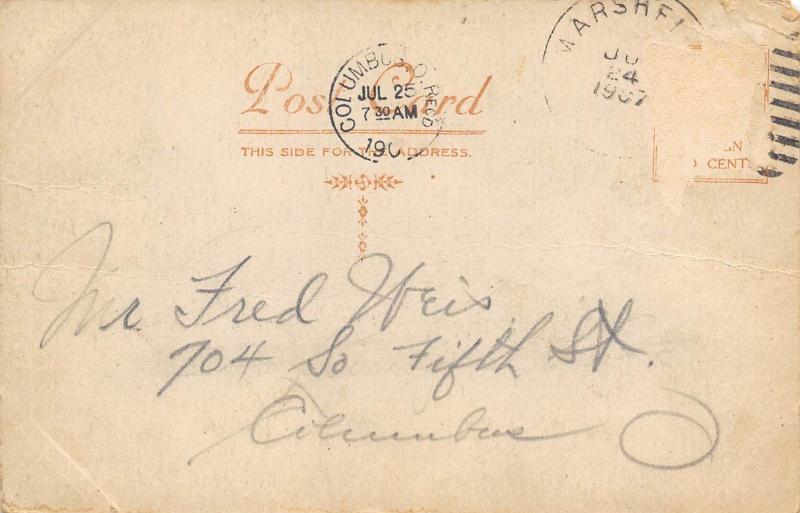 Post Card
THIS SIDE FOR THE ADDRESS.
COLUMBUS, O. REC'D
JUL 25
7 30 AM
190
MARSHFI
24
1907
CENTS
Mr. Fred Weis
704 So Fifth St.
Columbus O